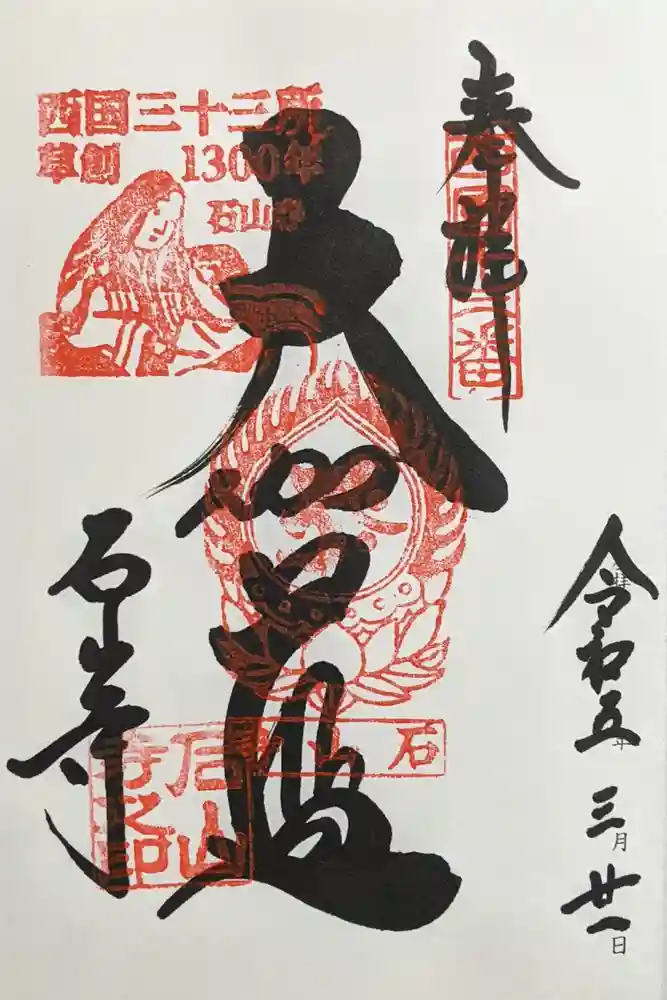 奉拝
西国十三番
令和五年 三月 廿一日
西国三十三所
草創 1300年
石山寺
石山寺
石山寺
石山寺之印